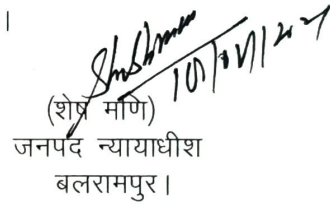 ।
(शेष मणि)
जनपद न्यायाधीश
बलरामपुर।